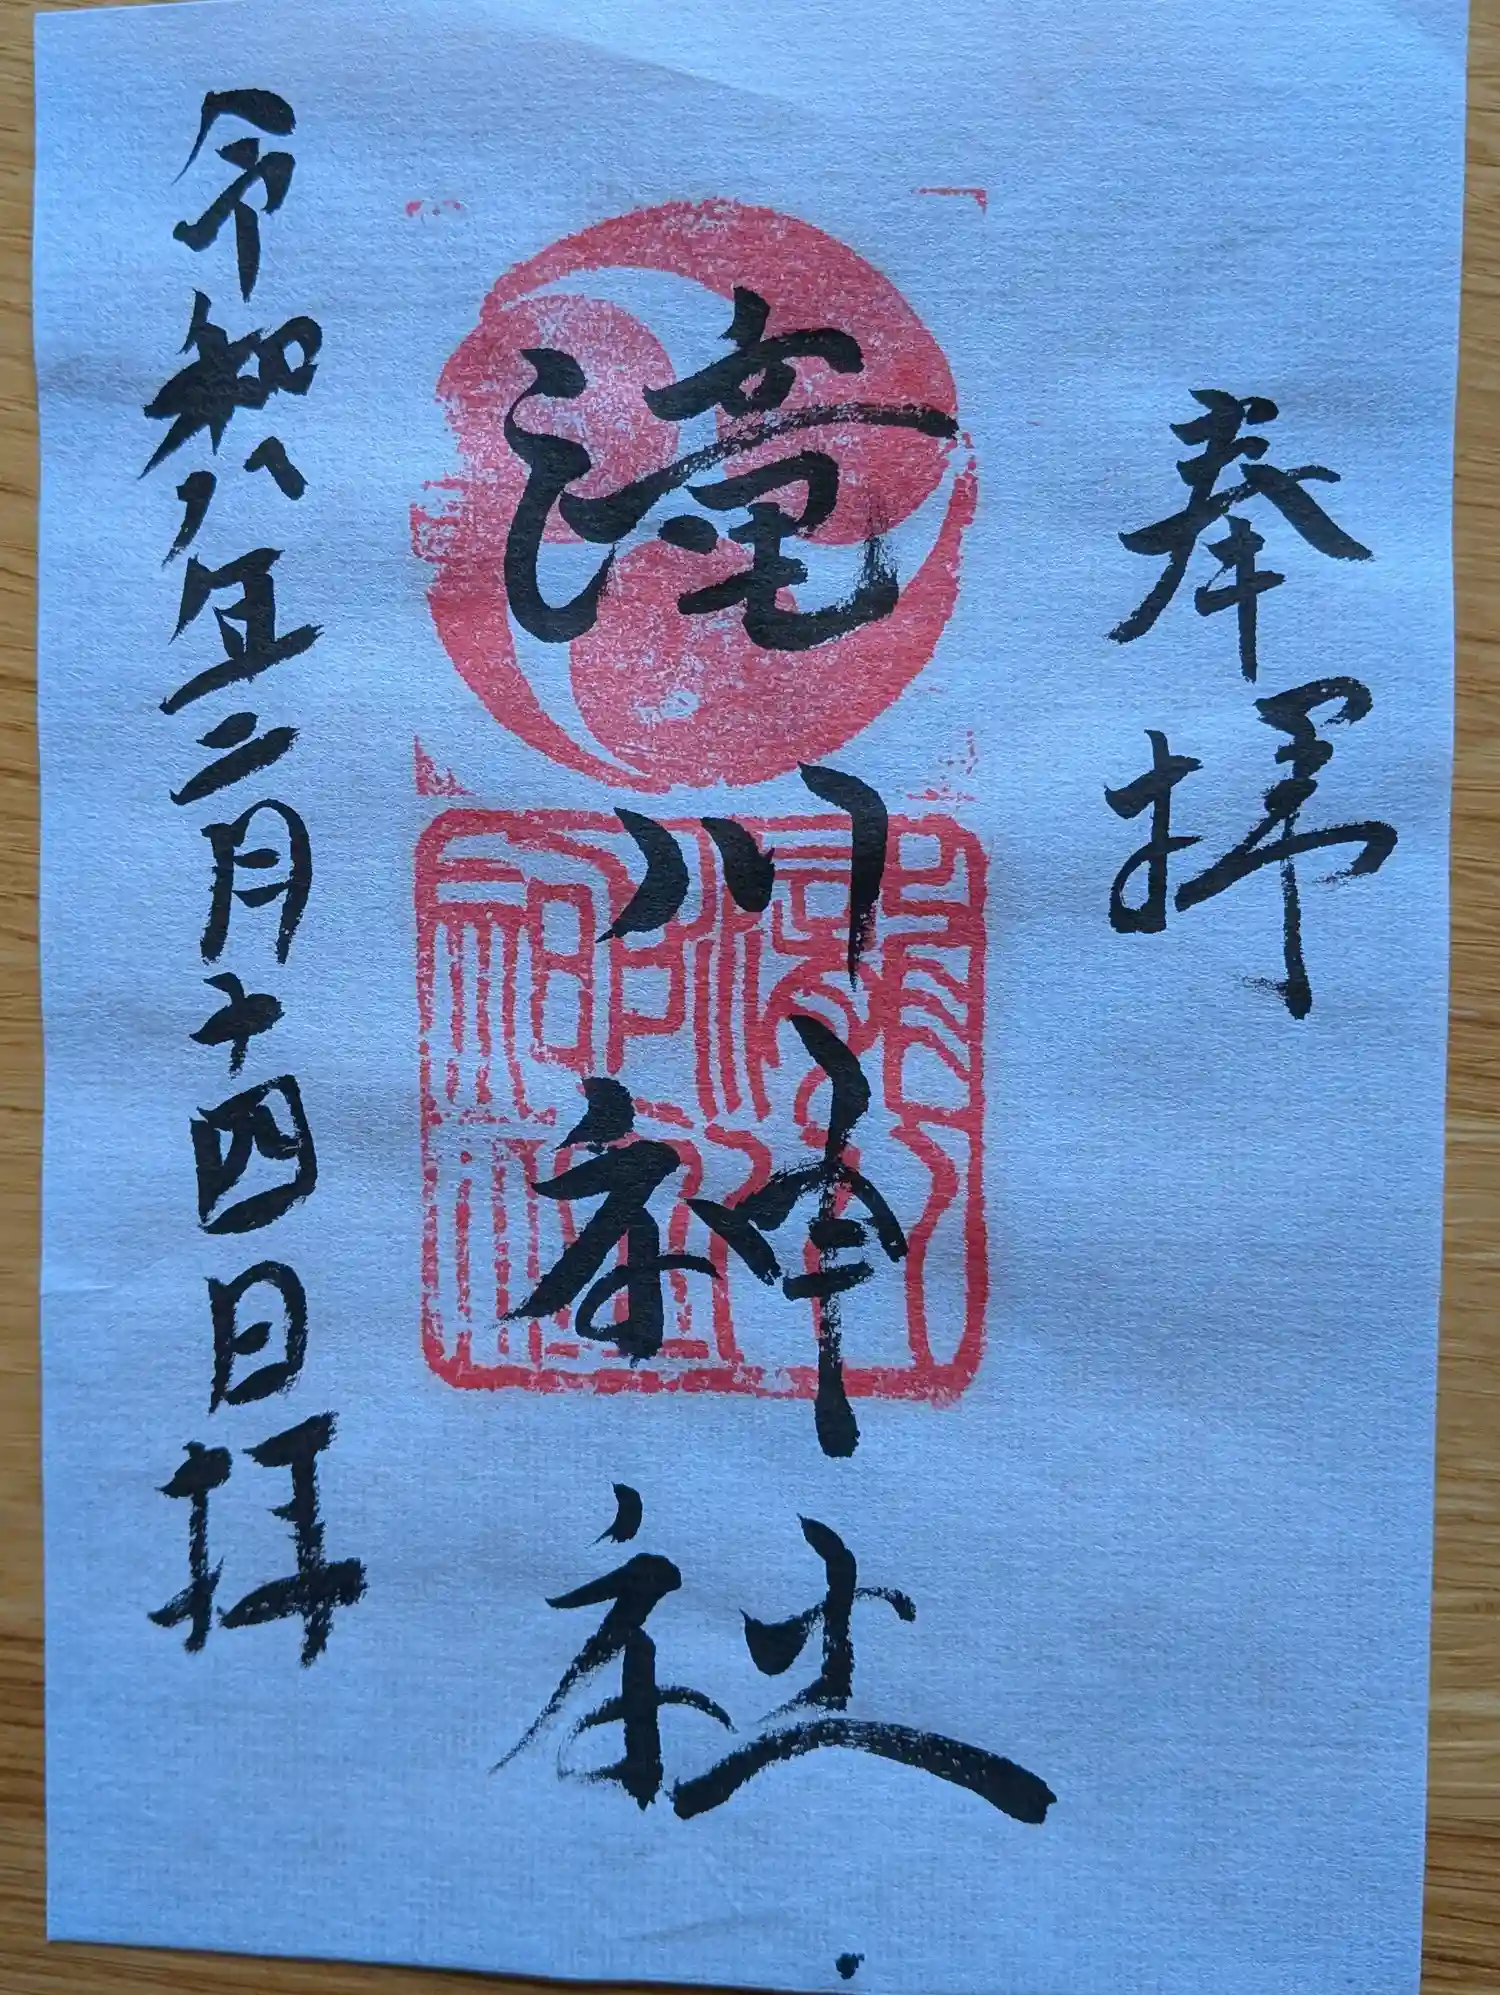 奉拝
滝川神社
令和八年二月十四日拝